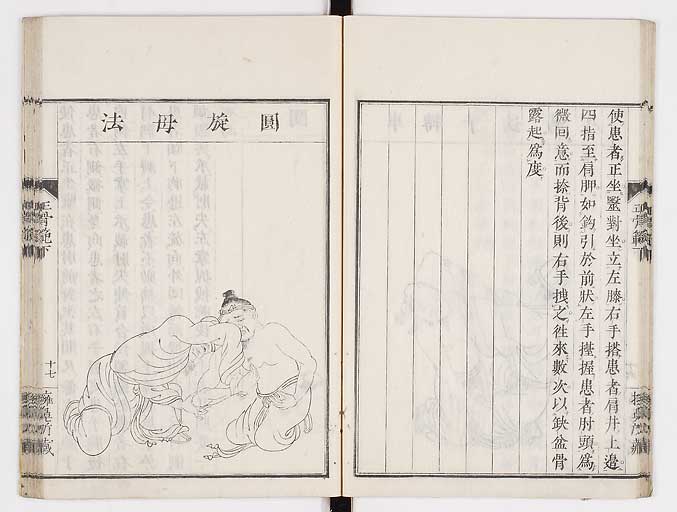 使患者正坐毉對坐立左膝右手搭患者肩井上邉
四指至肩胛如鈎引於前狀左手揑握患者肘頭爲
微回意而捺背後則右手拽之徃來數次以鈌盆骨
露起爲度
圓旋母法
正骨範下
十七